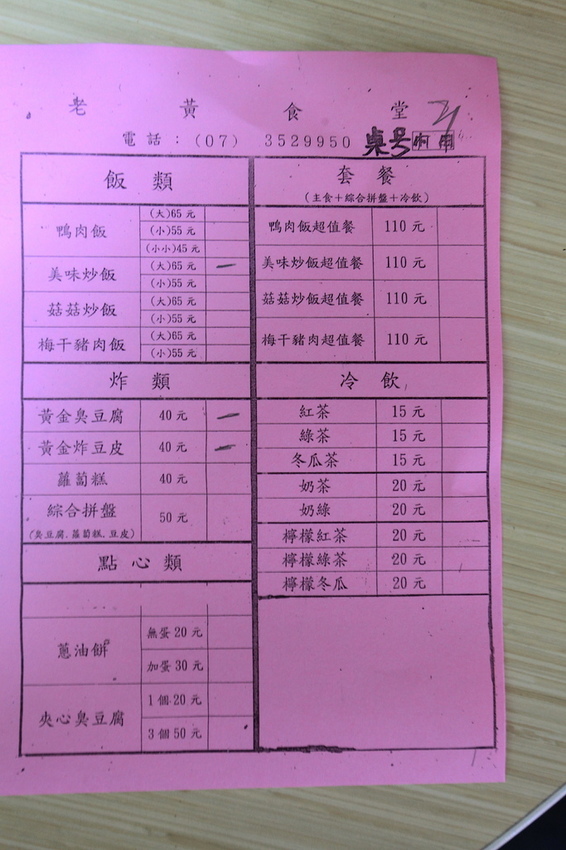 老黃食堂
電話：(07) 3529950 桌号
飯類
鴨肉飯 (大)65元
(小)55元
(小小)45元
美味炒飯 (大)65元
(小)55元
菇菇炒飯 (大)65元
(小)55元
梅干豬肉飯 (大)65元
(小)55元
炸類
黃金臭豆腐 40元
黃金炸豆皮 40元
蘿蔔糕 40元
綜合拼盤 50元
(臭豆腐.蘿蔔糕.豆皮)
點心類
蔥油餅 無蛋20元
加蛋30元
夾心臭豆腐 1個20元
3個50元
套餐
(主食+綜合拼盤+冷飲)
鴨肉飯超值餐 110元
美味炒飯超值餐 110元
菇菇炒飯超值餐 110元
梅干豬肉超值餐 110元
冷飲
紅茶 15元
綠茶 15元
冬瓜茶 15元
奶茶 20元
奶綠 20元
檸檬紅茶 20元
檸檬綠茶 20元
檸檬冬瓜 20元